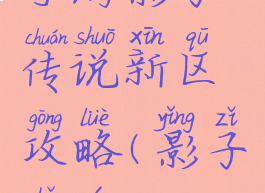 chuán shuō xīn qū
传说新区
gōng lüè yǐng zǐ
攻略(影子